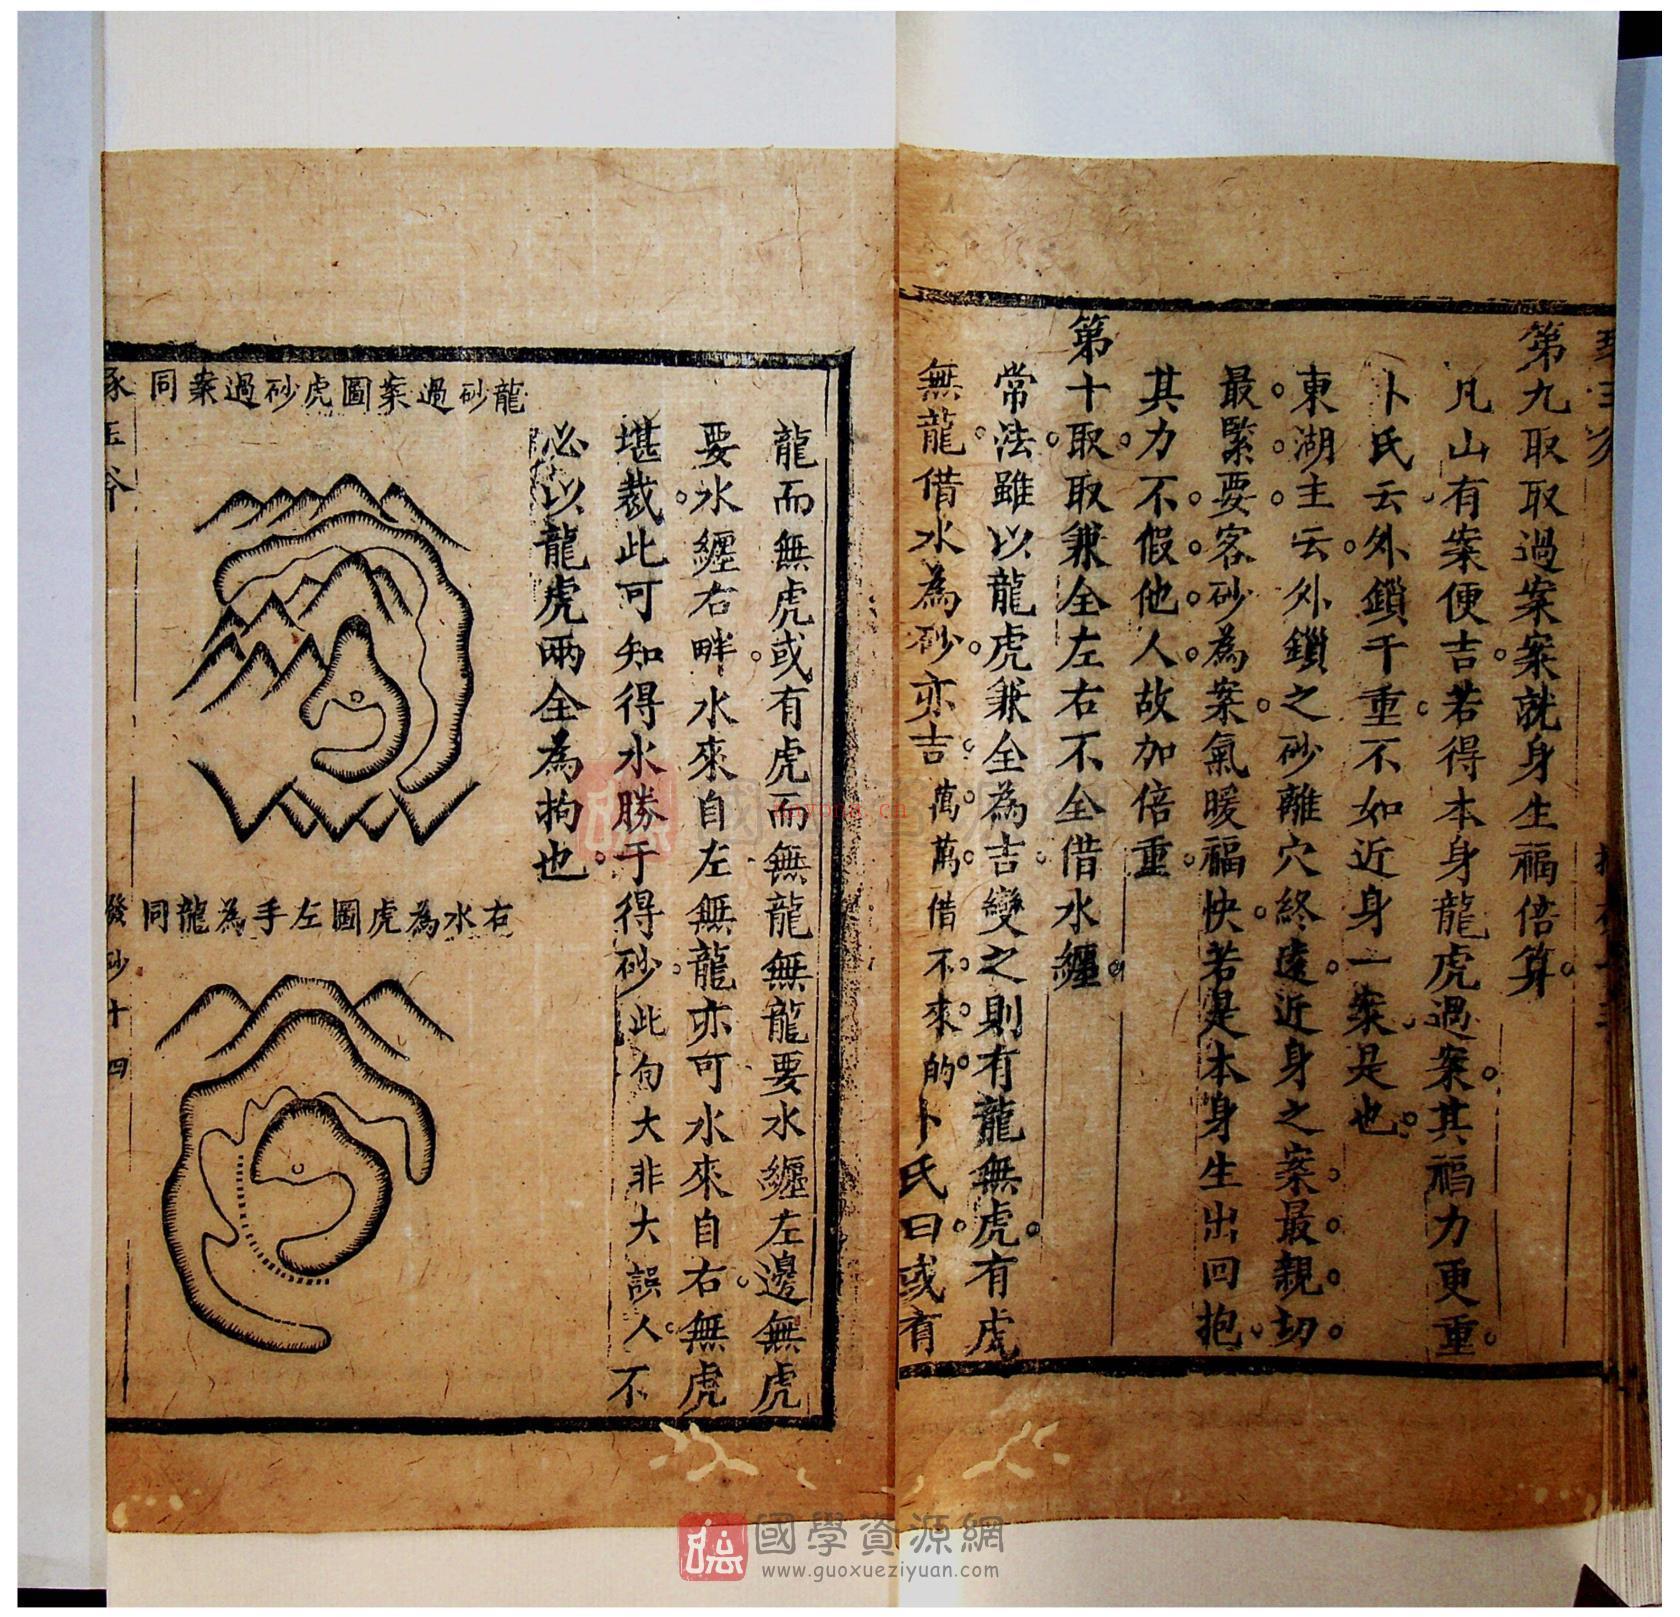 第九取取過案案就身生福倍算
凡山有案便吉若得本身龍虎過案其福力更重
卜氏云外鎖千重不如近身一案是也
東湖主云外鎖之砂離穴終遠近身之案最親切
最緊要客砂為案氣暖福快若是本身生出回抱
其力不假他人故加倍重
第十取取兼全左右不全借水纏
常法雖以龍虎兼全為吉變之則有龍無虎有虎
無龍借水為砂亦吉萬萬借不來的卜氏曰或有
龍而無虎或有虎而無龍無龍要水纏左邊無虎
要水纏右畔水來自左無龍亦可水來自右無虎
堪裁此可知得水勝于得砂此句大非大誤人不
必以龍虎兩全為拘也
龍砂過案圖虎砂過案同
右水為虎圖左手為龍同
發砂十四
國學資源網
www.guoxueziyuan.com